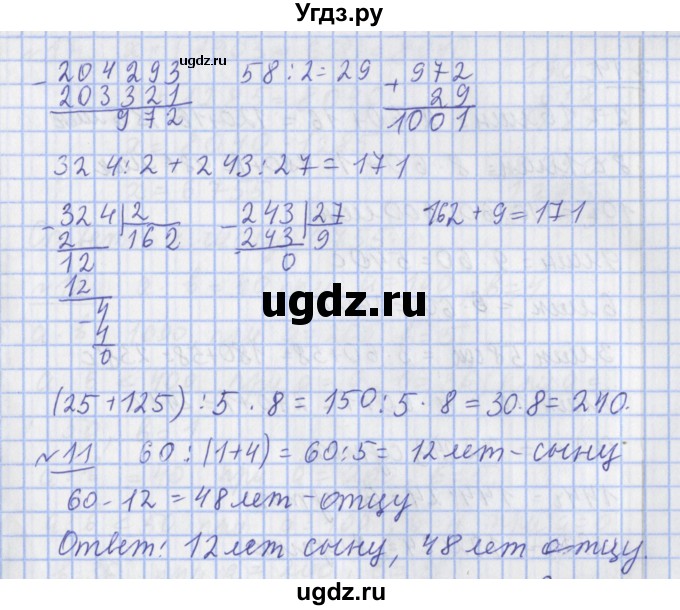 Угдз.ру
204293 58:2=29 +972
-203321 29
972 1001
324:2+243:27=171
-324|2 -243|27 162+9=171
2 162 243 9
12 0
12
-4
4
0
ugdz.ru
(25+125):5·8=150:5·8=30·8=240.
№11 60:(1+4)=60:5=12лет-сыну
60-12=48лет-отцу
Ответ: 12лет сыну, 48лет отцу.
ugdz.ru